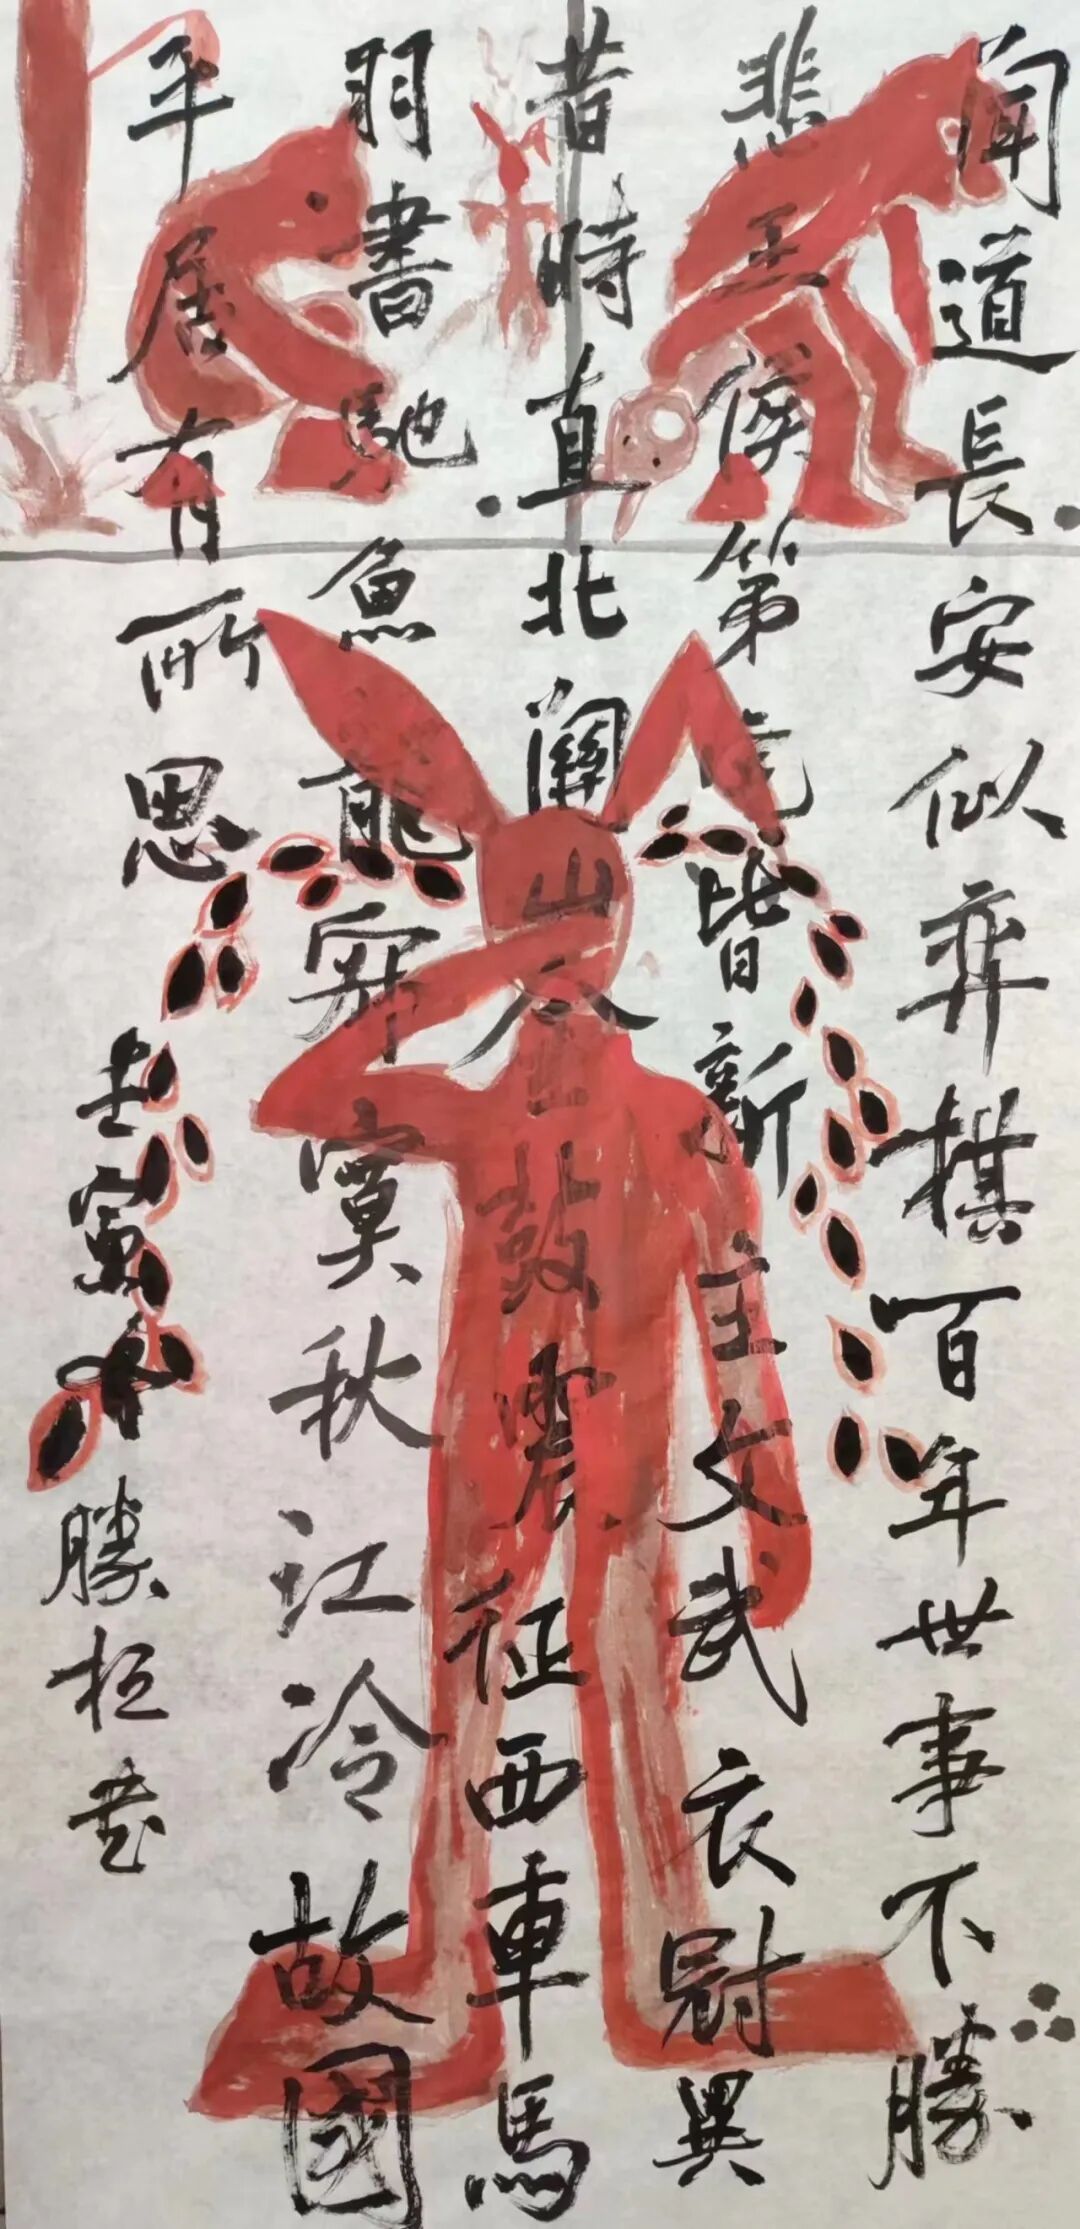 聞道長安似弈棋百年世事不勝
悲王侯第宅皆新主文武衣冠異
昔時直北關山金鼓震征西車馬
羽書馳魚龍寂寞秋江冷故國
平居有所思
壬寅勝桓书